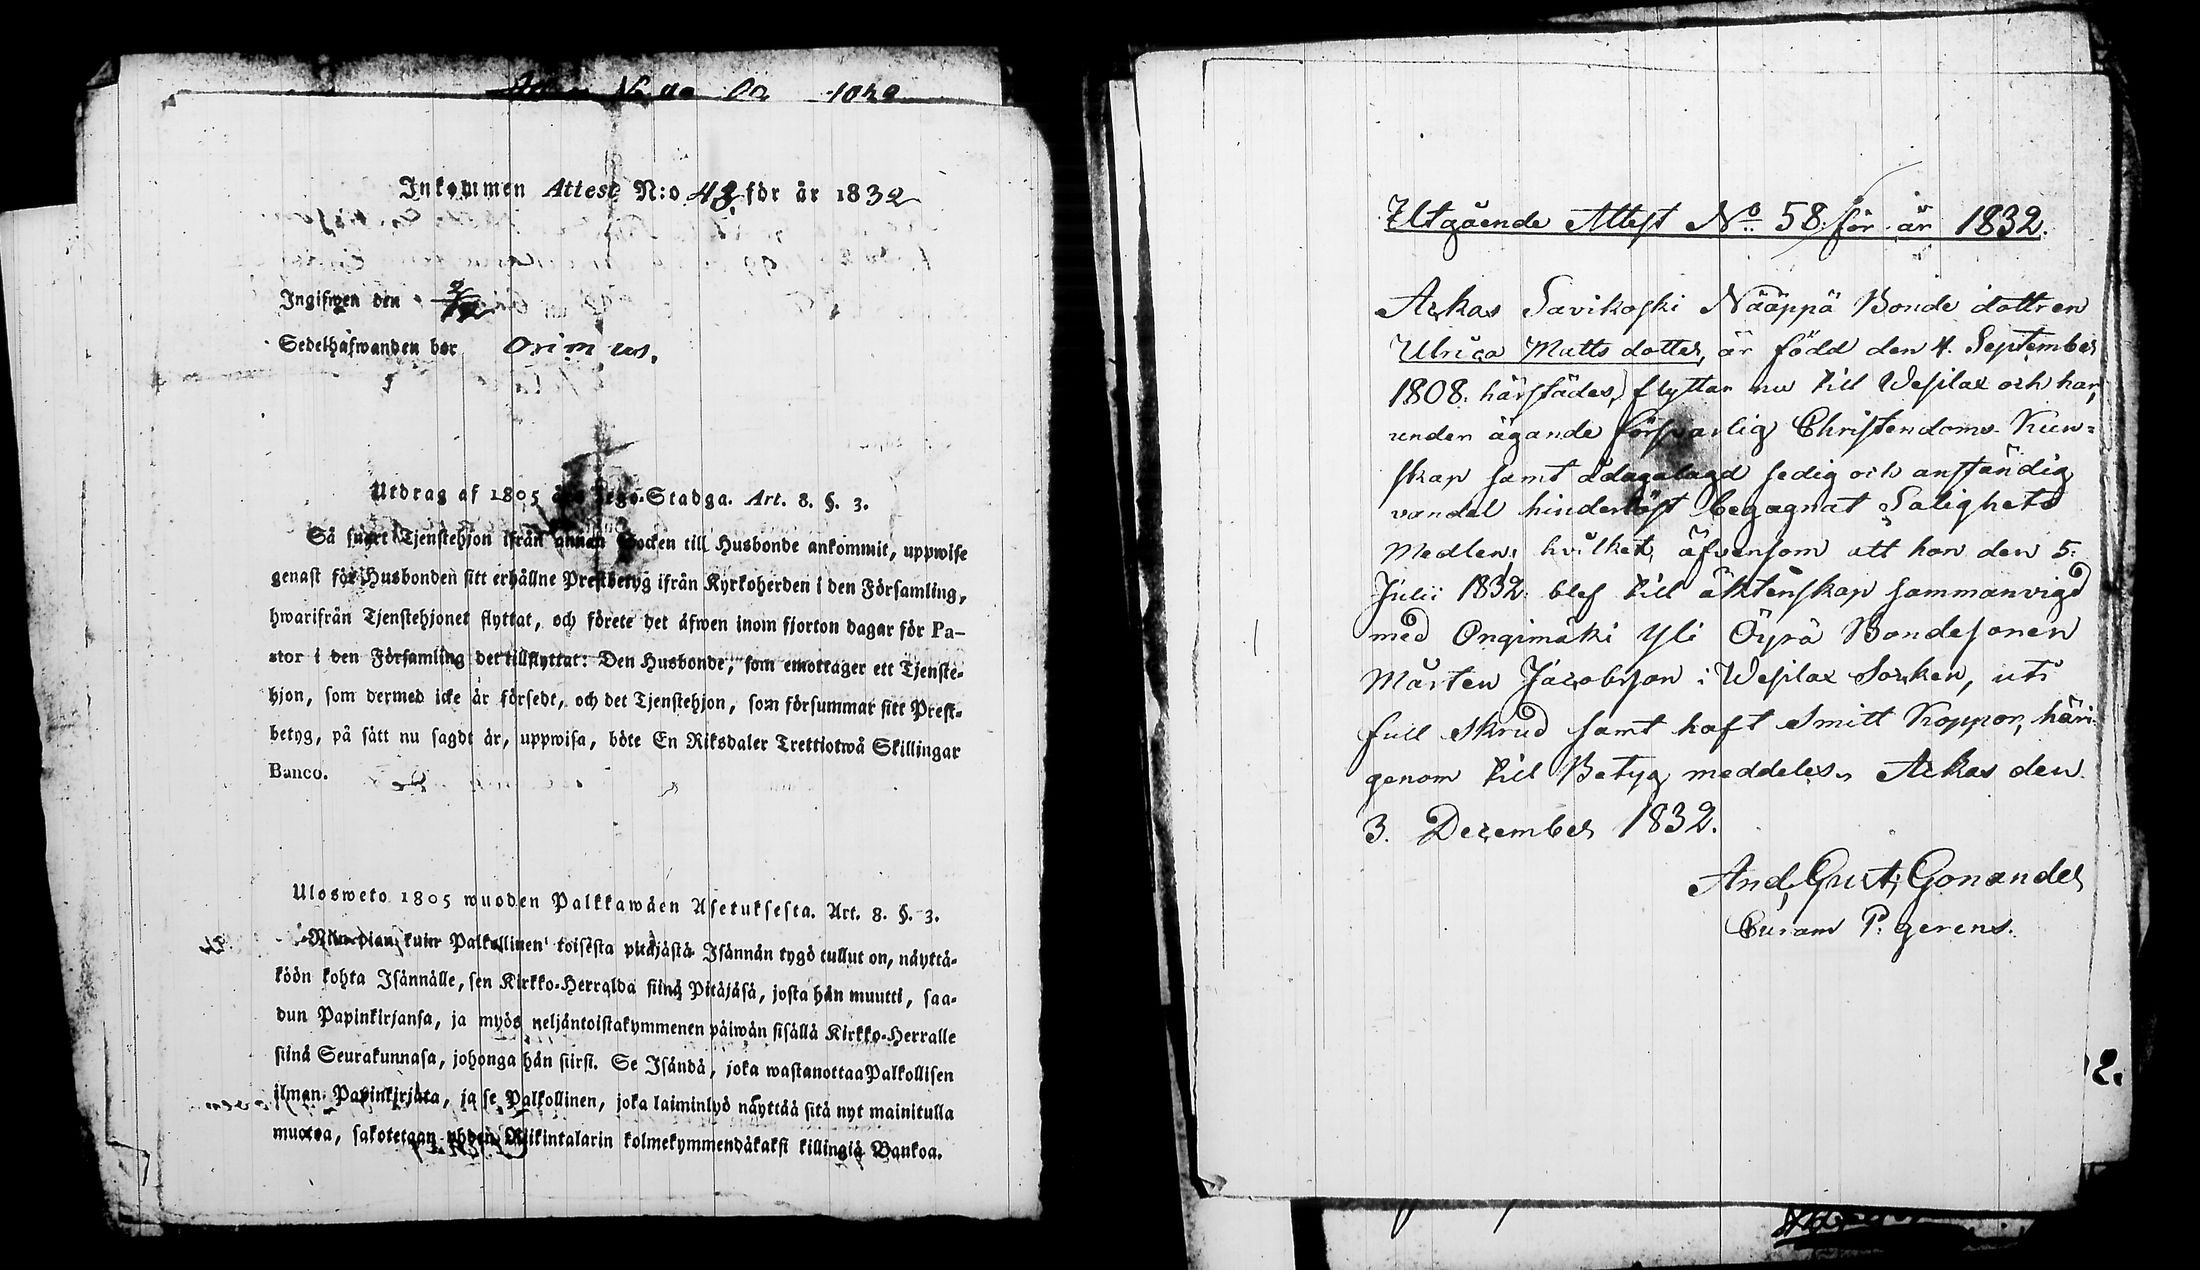 Inkommen Attest N:o 43 för år 1832
Ingifwen den
Sedelhafwanden bor
Utdrag af 1805 Lego-Stadga. Art. 8. §. 3.
Så snart Tjenstehjon ifrån annan Socken till Husbonde ankommit, uppwise
genast för Husbonden sitt erhållne Prestbetyg ifrån Kyrkoherden i den Församling,
hwarifrån Tjenstehjonet flyttat, och förete det äfwen inom fjorton dagar för Pa-
stor i den Församling det tillflyttat: Den Husbonde, som emottager ett Tjenste-
hjon, som dermed icke är försedt, och det Tjenstehjon, som försummar sitt Prest-
betyg, på sätt nu sagdt är, uppwisa, böte En Riksdaler Trettiotwå Skillingar
Banco.
Ulosweto 1805 wuoden Palkkawäen Asetuksesta. Art. 8. §. 3.
kuin Palkollinen toisesta pitäjästä Isännän tygö tullut on, näyttä-
köön kohta Isännälle, sen Kirkko-Herralda siinä Pitäjäsä, josta hän muutti, saa-
dun Papinkirjansa, ja myös neljäntoistakymmenen päiwän sisällä Kirkko-Herralle
siinä Seurakunnasa, johonga hän siirsi. Se Isändä, joka wastanottaa Palkollisen
ilman Papinkirjata, ja se Palkollinen, joka laiminlyö näyttää sitä nyt mainitulla
muotoa, sakotetaan yhden Riikintalarin kolmekymmendäkaksi killingiä Bankoa.
Utgående Attest No 58. för år 1832.
Ackas Savikoski Nääppä Bonde dottren
Ulrica Matts dotter, är född den 4. September
1808. härstädes, flyttar nu till Wesilax och har,
under ägande försvarlig Christendoms Kun=
skap samt ådagalagd sedig och anständig
vandel hinderlöst begagnat Salighets
Medlen; hvilket, äfvensom att hon den 5.
Julii 1832. blef till äktenskap sammanvigd
med Ongimäki Yli Öyrä Bondesonen
Mårten Jacobsson i Wesilax Socken, uti
full skrud samt haft smitt Koppor, häri-
genom till Betyg meddeles. Ackas den
3. December 1832.
And. Gust. Gonander
Curam P. gerens.